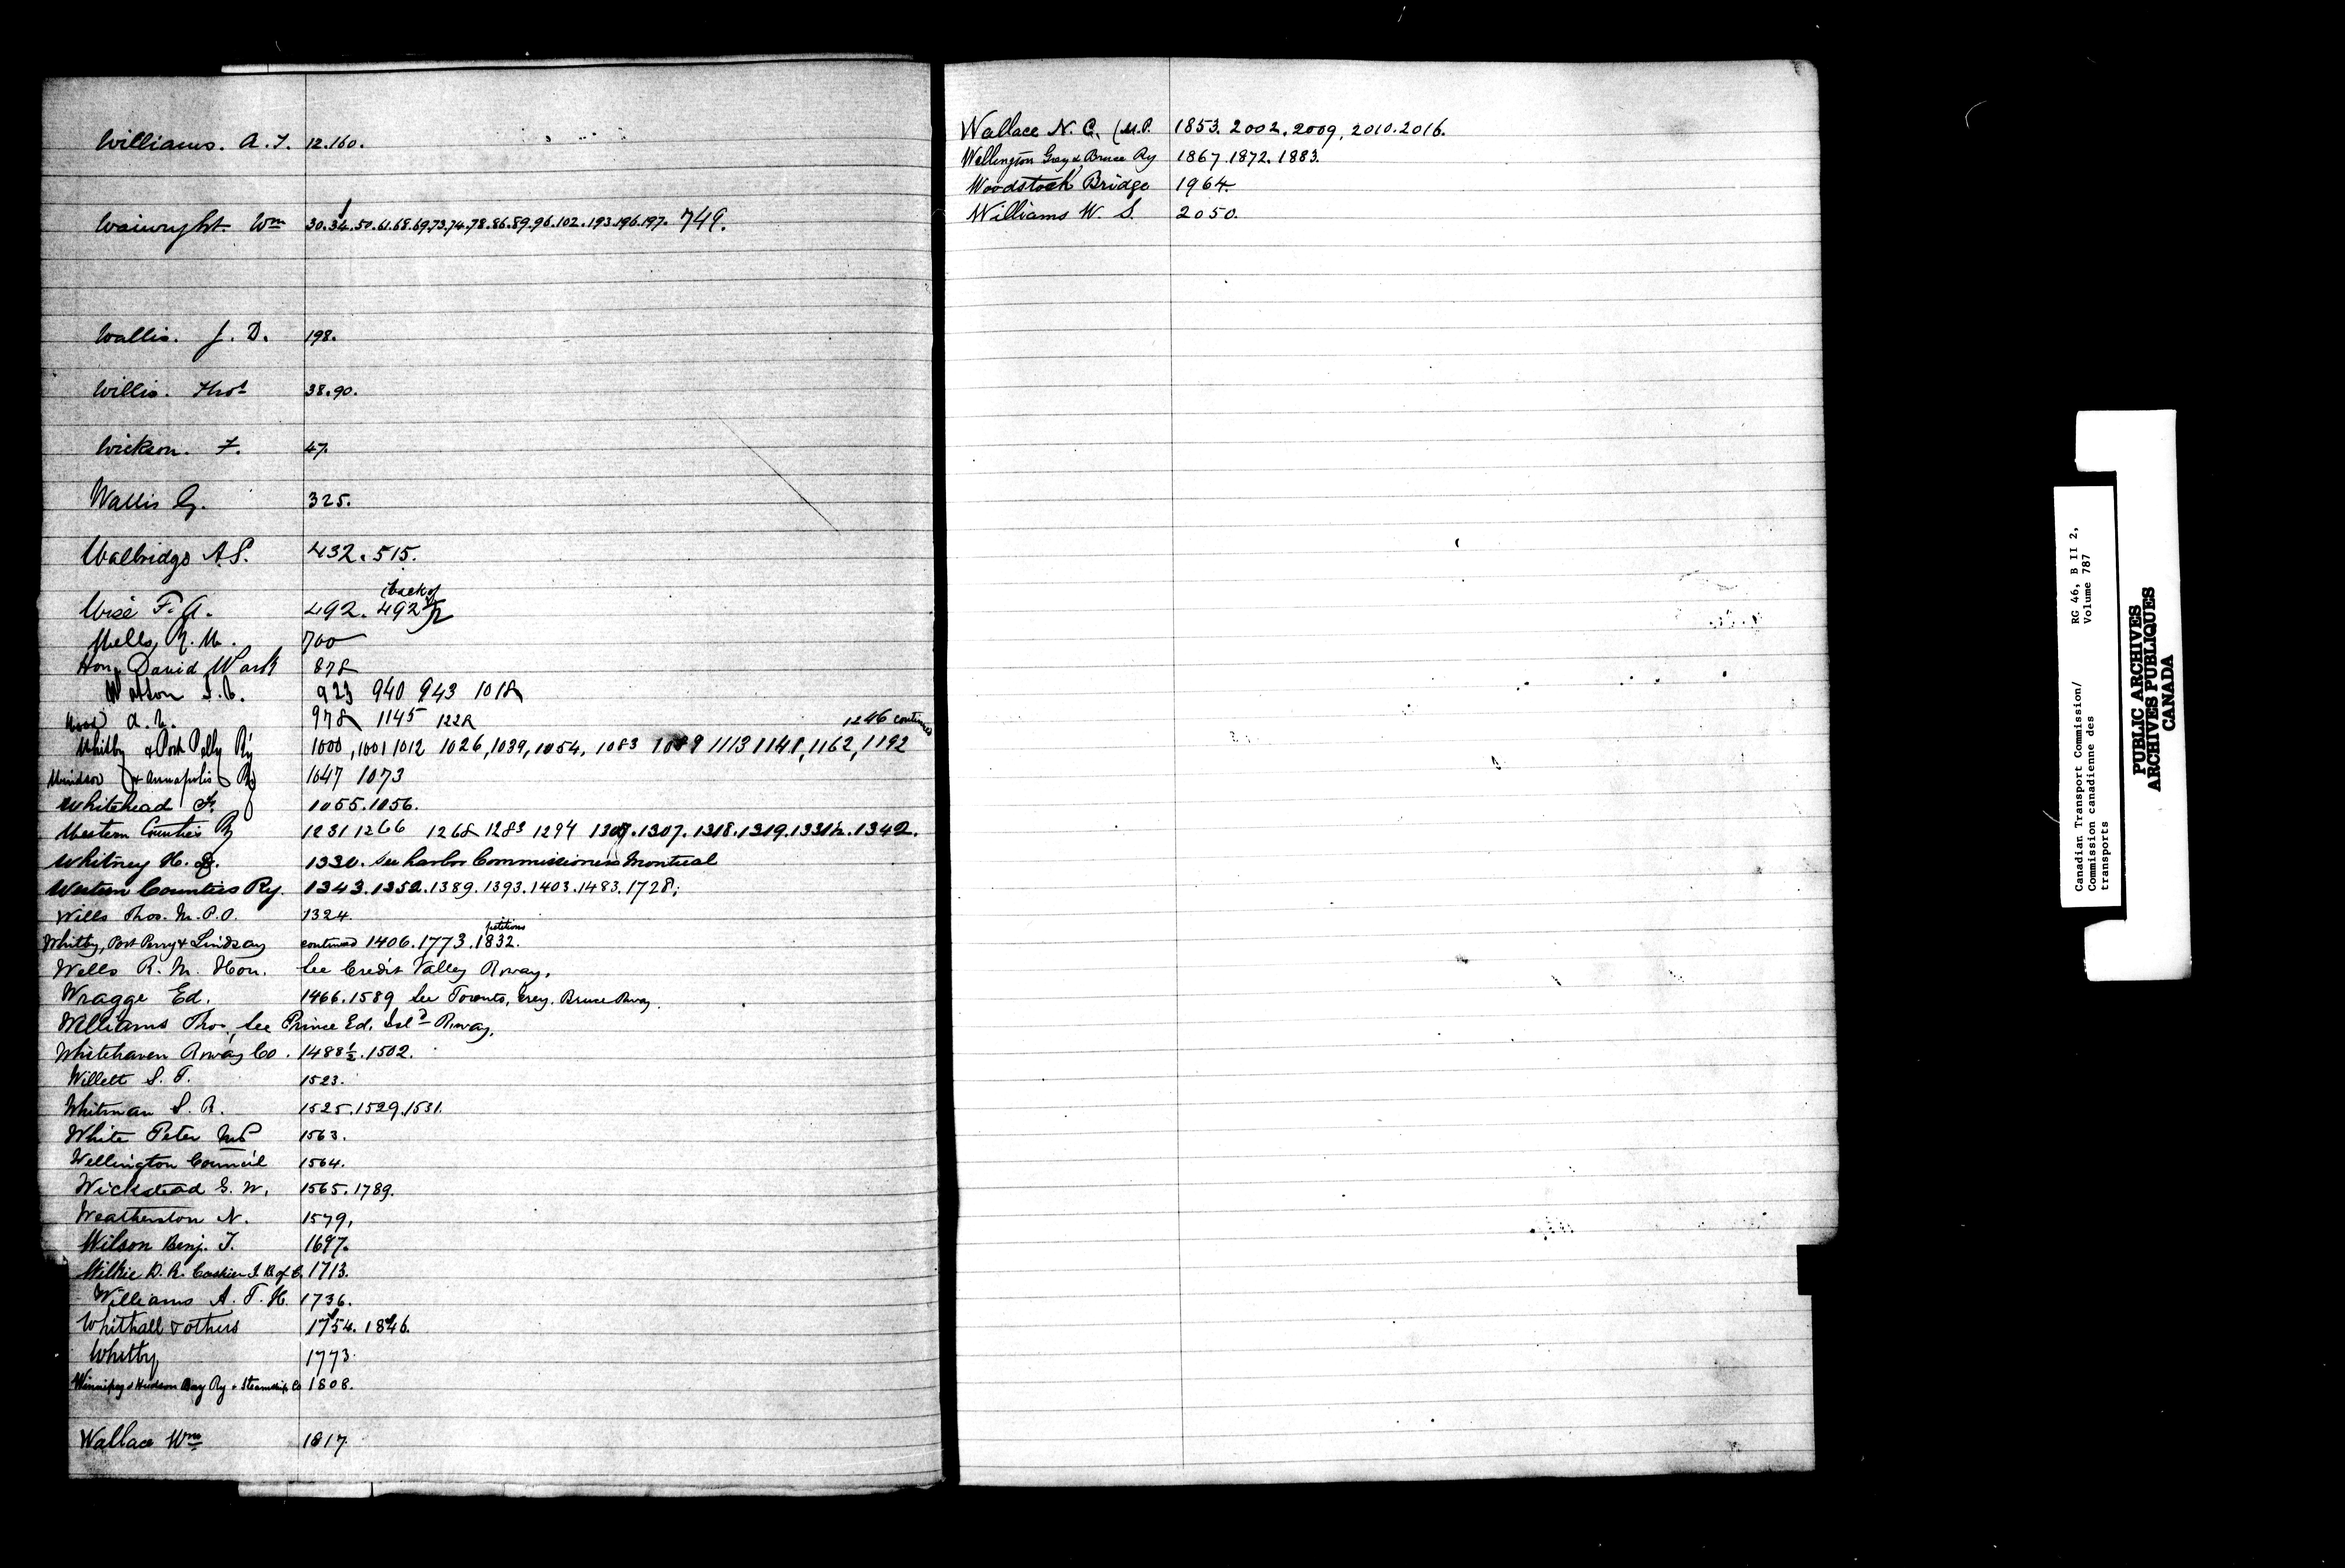 Williams. A. T. 12.160.
Wainwright. Wm 30.34.50.61.68.69.73.74.78.86.89.96.102.193.196.197. 749.
Wallis. J. D. 198.
Willis. Thos 38.90.
Wickson. F. 47.
Wallis G. 325.
Walbridge A.S. 432. 515.
back of
Wise F. A. 492. 492½
Wells, R. M. 700
Hon. David Wark 878
Watson 923 940 943 1018
Wood A. 978 1145 1246 continued
Whitby & Port Pelly Ry 1000, 1001 1012 1026, 1039, 1054, 1083 1089 1113 1148, 1162, 1192
Windsor & Annapolis Ry 1047 1073
Whitehead 1055. 1056.
Western Counties Ry 1231 1266 1268 1283 1294 1307. 1318. 1319. 1342.
Whitney H. 1330. See Harbor Commissioners Montreal
Western Counties Ry. 1343. 1352. 1389. 1393. 1403. 1483. 1728;
Wills Thos. M.P.P. 1324.
petitions
Whitby, Port Perry & Lindsay continued 1406. 1773. 1832.
Wells R. M. Hon. See Credit Valley Rway.
Wragge Ed. 1466. 1589 See Toronto, Grey. Bruce Rway.
Williams Thos, See Prince Ed. Isld Rway.
Whitehaven Rway Co. 1488½. 1502.
Willett S. T. 1523.
Whitman S. R. 1525. 1529. 1531.
White Peter MP 1563.
Wellington Council 1564.
Wickstead G. W. 1565. 1789.
Weatherston N. 1579,
Wilson Benj. T. 1697.
Wilkie D. R. Cashier I. B. of C. 1713.
Williams A. T. H. 1736.
Whithall & others 1754. 1846.
Whitby 1773.
Winnipeg & Hudson Bay Ry & Steamship Co 1808.
Wallace Wm 1817.
Wallace N. C. (M.P. 1853. 2002. 2009, 2010. 2016.
Wellington Grey & Bruce Ry 1867. 1872. 1883.
Woodstock Bridge 1964.
Williams W. S. 2050.
Canadian Transport Commission/ RG 46, B II 2,
Commission canadienne des Volume 787
transports
PUBLIC ARCHIVES
ARCHIVES PUBLIQUES
CANADA